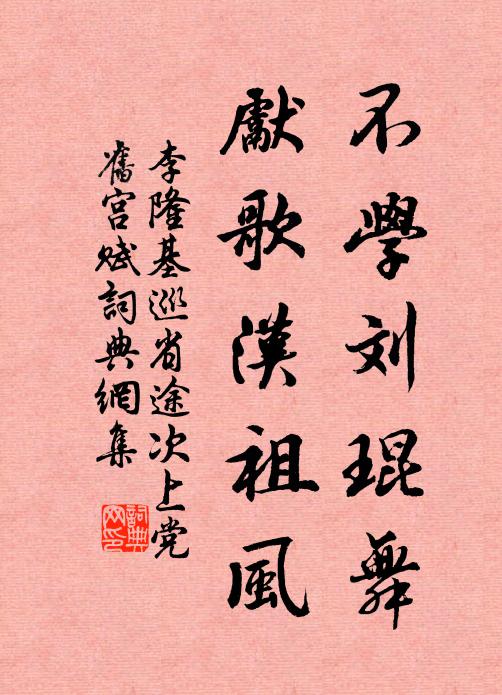 不學刘琨舞
獻歌漢祖風
李隆基巡省途次上党
舊宫赋詞典網集
詞典
网印